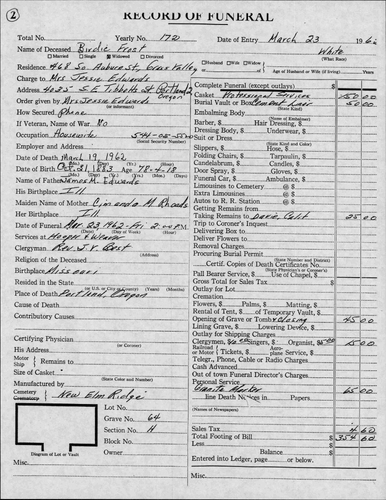 2
RECORD OF FUNERAL
Total No. Yearly No. 172 Date of Entry March 23 196
Name of Deceased Birdie Frost White
Married Single Widowed Divorced (What Race)
Residence 468 So. Auburn St., Grass Valley Husband Wife Widow of
Charge to Mrs Jessie Edwards Age of Husband or Wife (if living) Years
Address 4025 S.E. Tibbetts St. Portland 2, Oregon
Order given by Mrs Jessie Edwards
(or informant)
How Secured Phone
If Veteran, Name of War No
Occupation Housewife
Employer and Address
Date of Death March 19, 1962
Date of Birth Oct. 31, 1883 Age 78-4-18
Name of Father James M. Edwards
His Birthplace Ill
Maiden Name of Mother M. Rhoads
Her Birthplace Ill
Date of Funeral Mar 23, 1962 - Fri. 2 PM
Services at Hooper & Weaver
Clergyman Rev. J.V.
(Address)
Religion of the Deceased
Birthplace Missouri
Resided in the State
(or U.S. or City or County) (Years) (Months)
Place of Death Portland, Oregon
Cause of Death
Contributory Causes
Certifying Physician
His Address
Motor Ship Remains to
Size of Casket
(State Color and Number)
Manufactured by
Cemetery New Elm Ridge
Lot No.
Grave No. 64
Section No. H
Block No.
Owner
Diagram of Lot or Vault
Misc.
Complete Funeral (except outlays)
Casket Professional Services 150 00
Burial Vault or Box Cement Liner 50 00
(State Kind)
Embalming Body
(Name of Embalmer)
Barber, Hair Dressing,
Dressing Body, Underwear,
Suit or Dress
(State Kind and Color)
Slippers, Hose,
Folding Chairs, Tarpaulin,
Candelabrum, Candles,
Door Spray, Gloves,
Funeral Car, Ambulance,
Limousines to Cemetery @ $
Extra Limousines @ $
Autos to R. R. Station @ $
Getting Remains from
Taking Remains to Davis, Calif. 25 00
Trip to Coroner's Inquest
Delivering Box to
Deliver Flowers to
Removal Charges
Procuring Burial Permit
(State Number and District)
Certif. Copies of Death Certificates No.
(State Physician's or Coroner's)
Pall Bearer Service, Use of Chapel,
Gross Total for Sales Tax
Outlay for Lot
Cremation
Flowers, Palms, Matting,
Rental of Tent, of Temporary Vault,
Opening of Grave or Tomb & closing 45 00
Lining Grave, Lowering Device,
Outlay for Shipment
Clergymen, Singers, Organist 15 00
Railroad Aero- or Motor Tickets, plane Service,
Telegr., Phone, Cable or Radio Charges
Cash Advanced
Out of town Funeral Director's Charge
Personal Service
Granite Marker 65 00
line Death Notices in Papers.
(Names of Newspapers)
Sales Tax 4 60
Total Footing of Bill $ 354 60
Less
Balance
Entered into Ledger, page or below.
Misc.